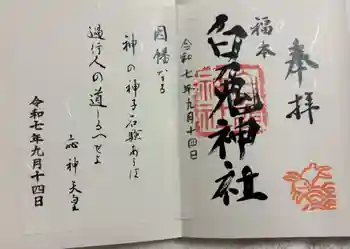 奉拝
福本
白兎神社
令和七年九月十四日
因幡なる
神の神子石験あらは
過行人の道しるへせよ
応神天皇
令和七年九月十四日